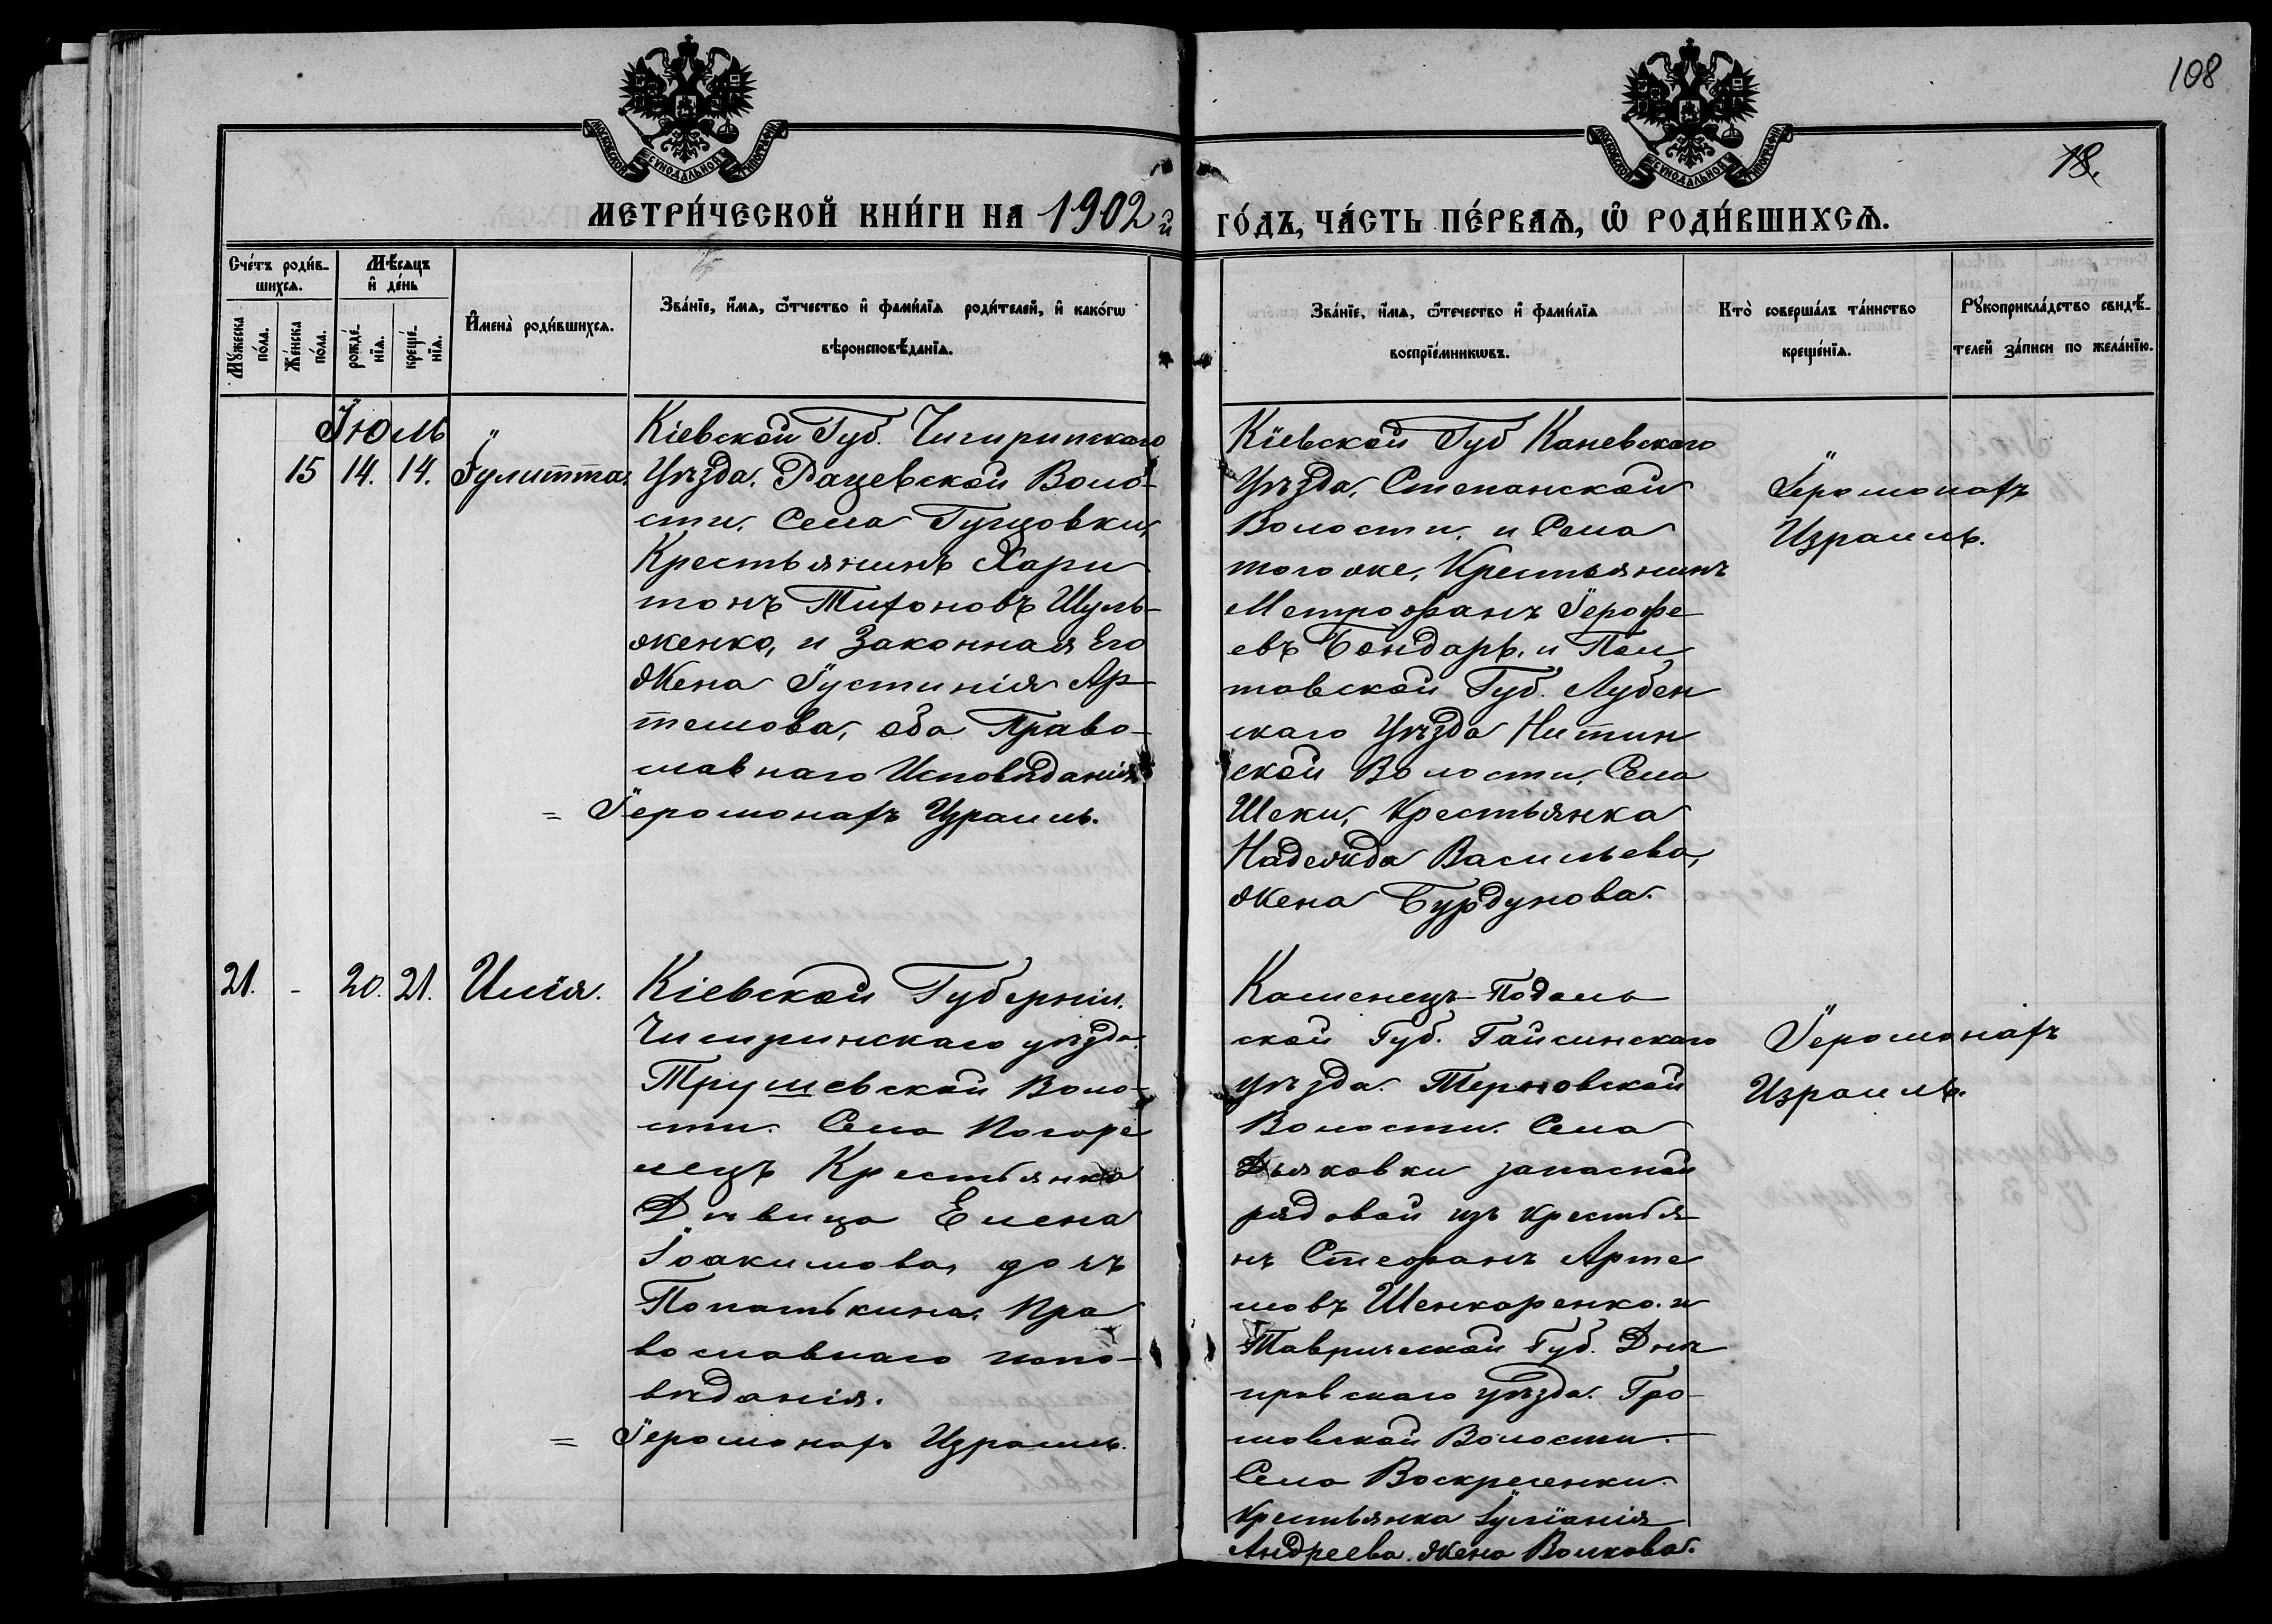 108
18.
МОСКОВСКОЙ СѴНОДАЛЬНОЙ ТИПОГРАФІИ
МОСКОВСКОЙ СѴНОДАЛЬНОЙ ТИПОГРАФІИ
МЕТРИ́ЧЕСКОЙ КНИ́ГИ НА 1902 й ГО́ДЪ, ЧА́СТЬ ПЕ́РВАѦ, Ѽ РОДИ́ВШИХСѦ.
Сче́тъ роди́в-
шихсѧ.
Мѣ́сѧцъ
и҆ де́нь
Мꙋ́жеска
по́ла.
Же́нска
по́ла.
рожде́-
нїѧ.
креще́-
нїѧ.
И҆мена̀ роди́вшихсѧ.
Зва́нїе, и҆́мѧ, ѻ҆́тчество и҆ фами́лїѧ роди́телей, и҆ како́гѡ
вѣроисповѣ́данїѧ.
Зва́нїе, и҆́мѧ, ѻ҆́течество и҆ фами́лїѧ
воспрїе́мникѡвъ.
Кто̀ соверша́лъ та́инство
креще́нїѧ.
Рꙋкоприкла́дство свидѣ́-
телей за́писи по жела́нїю.
Іюль
15 14. 14. Іулитта.
Кіевской Губ. Чигиринскаго
Уѣзда, Рацевской Воло-
сти, Села
Крестьянинъ Хари
тонъ Тихоновъ Шуль-
женко, и Законная Его
Жена Іустинія Ар-
темова, оба Право-
славнаго Исповѣданія
= Іеромонахъ Израиль.
Кіевской Губ Каневскаго
Уѣзда, Степанской
Волости, и Села
тогоже, Крестьянинъ
Метрофанъ Іерофе
евъ Бондарь, и Пол
товской Губ. Лубен
скаго Уѣзда
ской Волости, Села
Шеки, Крестьянка
Надежда Васильева,
Жена Бурдунова.
Іеромонахъ
Израиль.
21. - 20. 21. Илія.
Кіевской Губерніи.
Чигиринскаго уѣзда.
Трушевской Воло-
сти. Села Погоре
лецъ Крестьянка
Дѣвица Елена
Іоакимова, дочь
Полатькина. Пра
вославнаго испо-
вѣданія.
= Іеромонахъ Израиль.
Каменецъ-Подоль
ской Губ. Гайсинскаго
уѣзда. Терновской
Волости. Села
Дьяковки запасной
рядовой изъ крестья
нъ Стефанъ Арте
мовъ Шенкаренко. и
Таврической Губ. Днѣ
провскаго уѣзда. Гро-
мовской Волости.
Села Воскресенки.
Крестьянка Іуліанія
Андреева. Жена Волкова.
Іеромонахъ
Израиль.